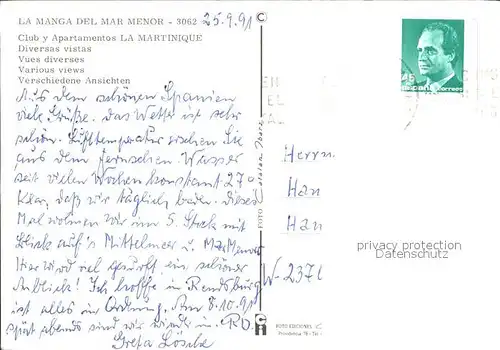 LA MANGA DEL MAR MENOR - 3062
25.9.91
Club y Apartamentos LA MARTINIQUE
Diversas vistas
Vues diverses
Various views
Verschiedene Ansichten
Aus dem schönen Spanien
viele Grüße. Das Wetter ist sehr
schön. Lufttemperatur ersehen Sie
aus dem Fernsehen. Wasser
seit vielen Wochen konstant 27°
Klar, daß wir täglich baden. Dieses
Mal wohnen wir im 5. Stock mit
Blick auf's Mittelmeer u. Mar Menor
Hier wird viel gesurft, ein schöner
Anblick! Ich hoffe in Rendsburg
ist alles in Ordnung. Am 8.10.91
spät abends sind wir wieder in RD.
Greta Lösche
FOTO
46
España Correos
Herrn
Han
Han
W-237
privacy protection
Datenschutz
FOTO EDICIONES